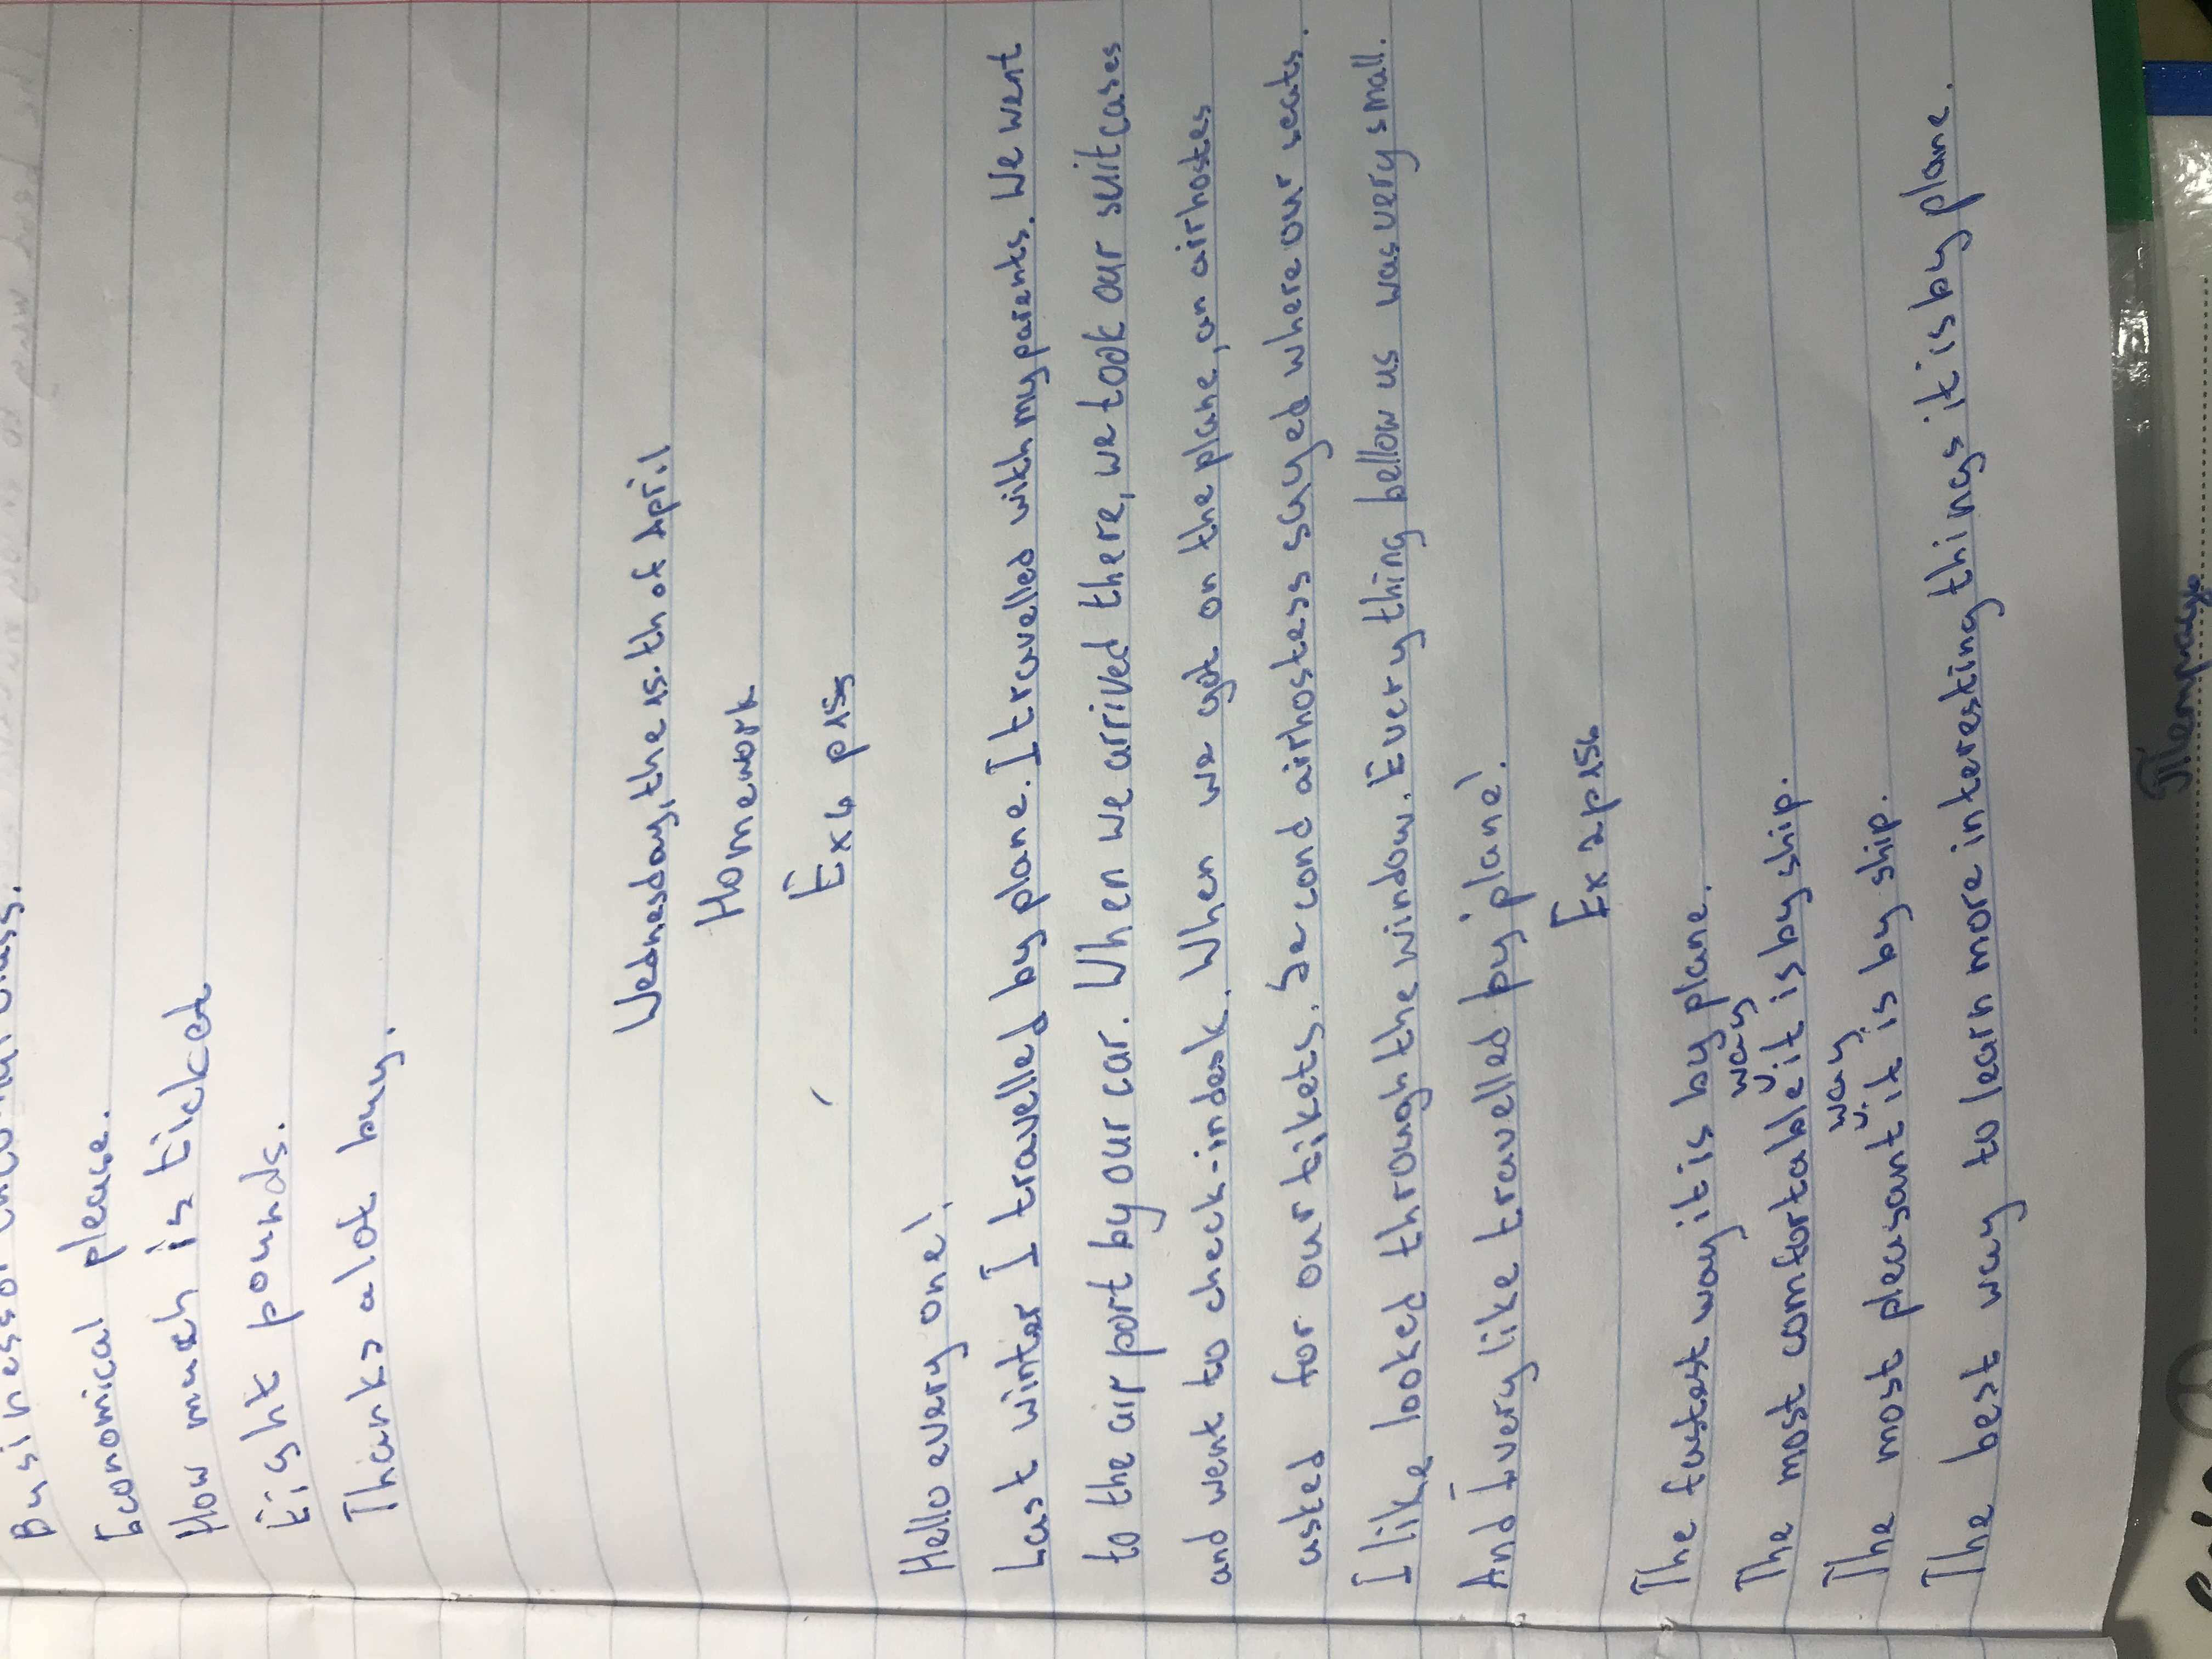 Economical please.
How much is ticket
Eight pounds.
Thanks alot buy.
Wednesday, the 15.th of April
Homework
Ex 4 p 155
Hello every one!
Last winter I travelled by plane. I travelled with my parents. We went
to the air port by our car. When we arrived there, we took our suitcases
and went to check-indesk. When we got on the plane, an airhostes
asked for our tikets. Second airhostess sayed where our seats.
I like looked through the window. Every thing bellow us was very small.
And I very like travelled by plane!.
Ex 2 p 156
The fastest way it is by plane.
way
The most comfortable it is by ship.
way
The most pleasant it is by ship.
The best way to learn more interesting things it is by plane.